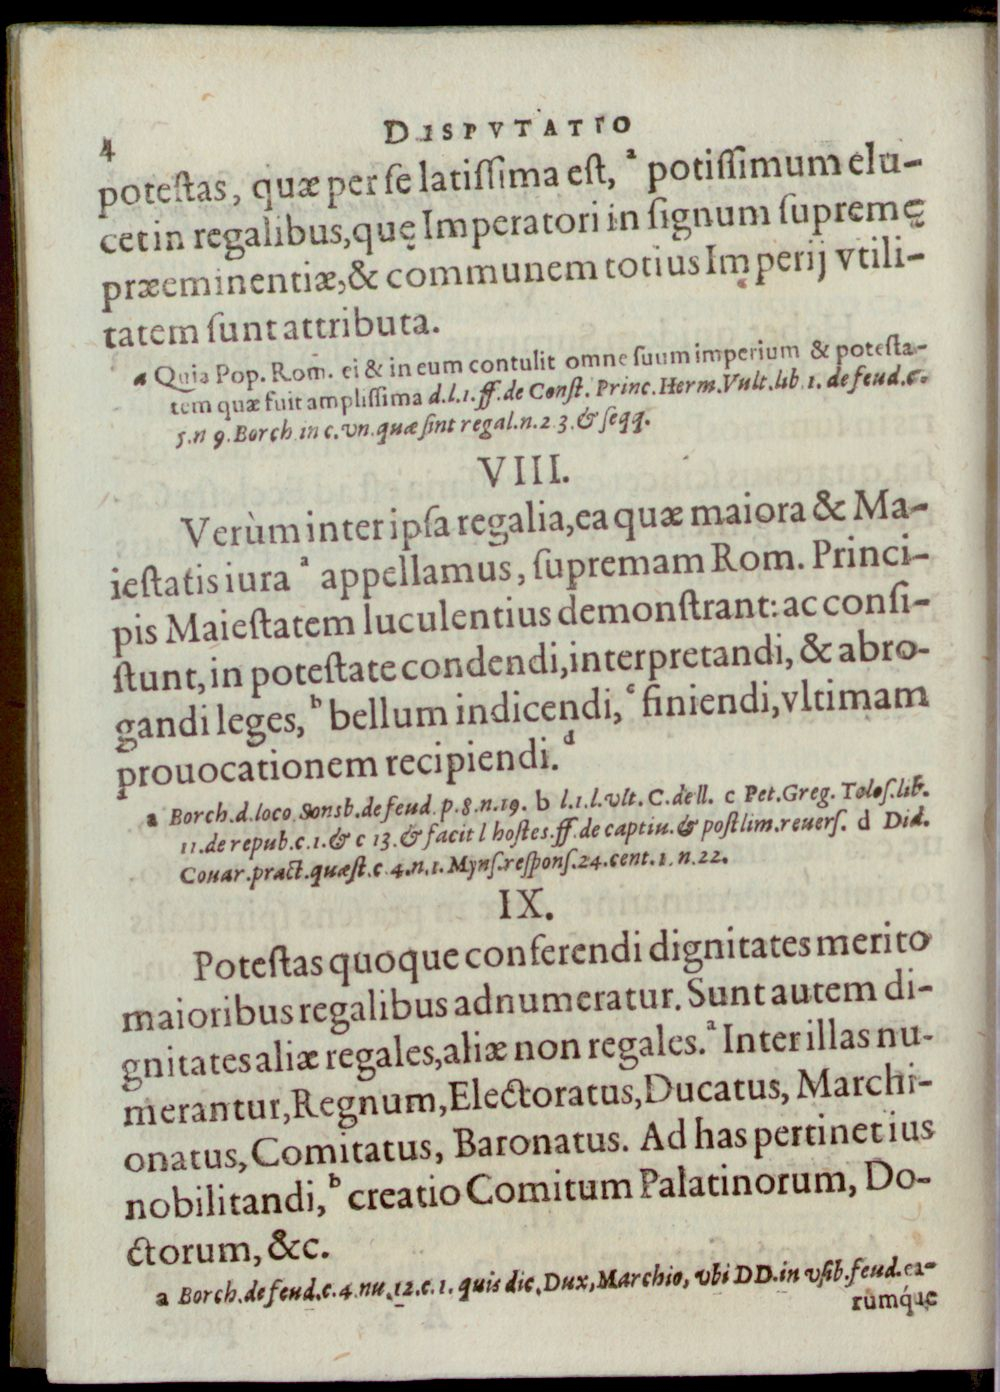 4
DISPVTATIO
poteſtas, quæ per ſe latiſſima eſt, ª potiſſimum elu-
cet in regalibus, quę Imperatori in ſignum ſupremę
præeminentiæ, & communem totius Imperij vtili-
tatem ſunt attributa.
a Quia Pop. Rom. ei & in eum contulit omne ſuum imperium & poteſta-
tem quæ fuit ampliſſima d. l. 1. ff. de Conſt. Princ. Herm. Vult. lib. 1. de feud. c.
5. n 9. Borch. in c. vn. quæ ſint regal. n. 2 3. & ſeqq.
VIII.
Verùm inter ipſa regalia, ea quæ maiora & Ma-
ieſtatis iura ª appellamus, ſupremam Rom. Princi-
pis Maieſtatem luculentius demonſtrant: ac conſi-
ſtunt, in poteſtate condendi, interpretandi, & abro-
gandi leges, ᵇ bellum indicendi, ᶜ finiendi, vltimam
prouocationem recipiendi. ᵈ
a Borch. d. loco Sonsb. de feud. p. 8. n. 19. b l. 1. l. vlt. C. de ll. c Pet. Greg. Toloſ. lib.
11. de repub. c. 1. & c 13. & facit l hoſtes. ff. de captiu. & poſtlim. reuerſ. d Did.
Couar. pract. quæſt. c. 4. n. 1. Mynſ. reſponſ. 24. cent. 1. n. 22.
IX.
Poteſtas quoque conferendi dignitates merito
maioribus regalibus adnumeratur. Sunt autem di-
gnitates aliæ regales, aliæ non regales. ª Inter illas nu-
merantur, Regnum, Electoratus, Ducatus, Marchi-
onatus, Comitatus, Baronatus. Ad has pertinet ius
nobilitandi, ᵇ creatio Comitum Palatinorum, Do-
ctorum, &c.
a Borch. de feud. c. 4. nu. 12. c. 1. quis dic. Dux, Marchio, vbi DD. in vſib. feud. ea-
rumq́ue